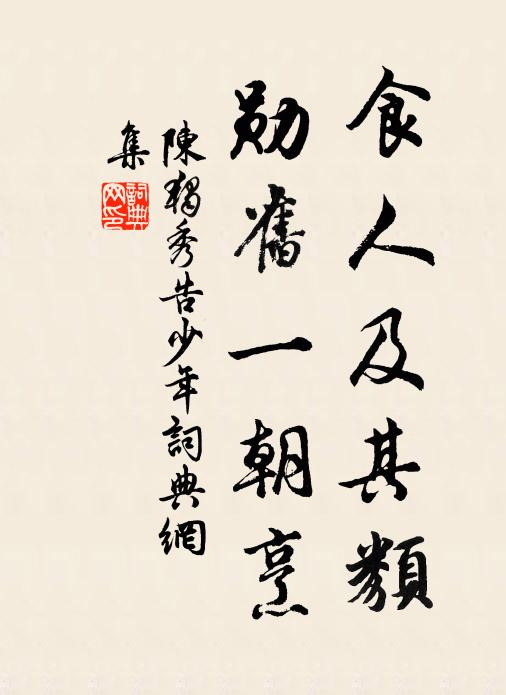 食人及其類
勛舊一朝烹
陳獨秀告少年詞典網
集
詞典
网印